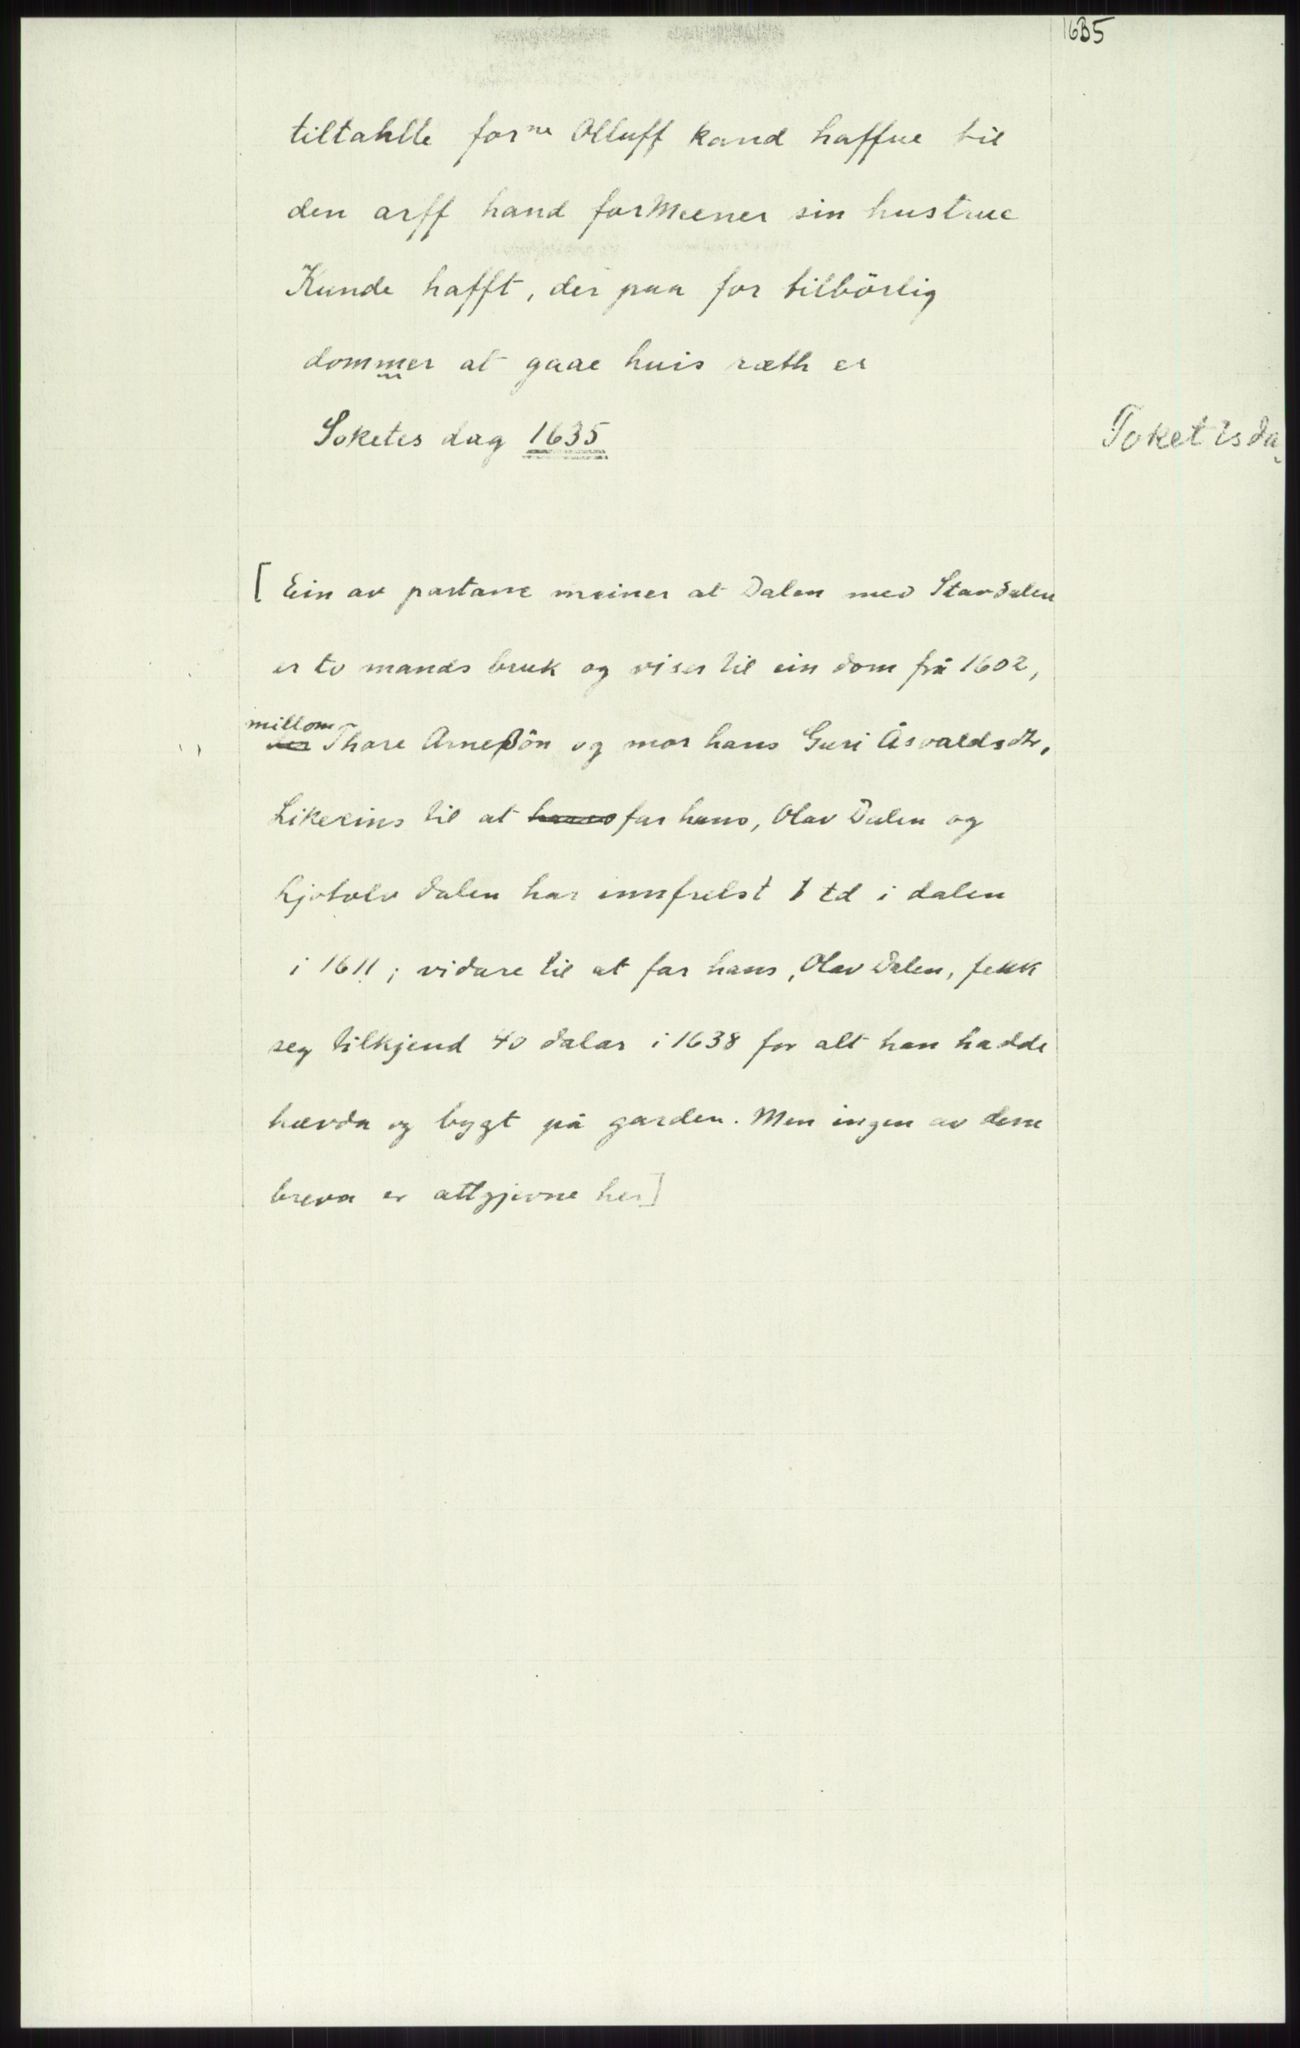 1635
tiltahlte forne Olluff kand haffue til
den arff hand forMeener sin hustrue
Kunde hafft, der paa for tilbörlig
dommer at gaae huis ræth er
Soketes dag 1635
Toketesda
[ Ein av partane meiner at Dalen med Stavdalen
er to mands bruk og viser til ein dom frå 1602,
millom
Thore Arnesön og mor hans Guri Åsvaldsdtr,
Likeeins til at hans far hans, Olav Dalen og
Kjotolv dalen har innfrelst 1 td i dalen
i 1611; vidare til at far hans, Olav Dalen, fekk
seg tilkjend 40 dalar i 1638 for alt han hadde
hævda og bygt på garden. Men ingen av dem
breva er attgjevne her]